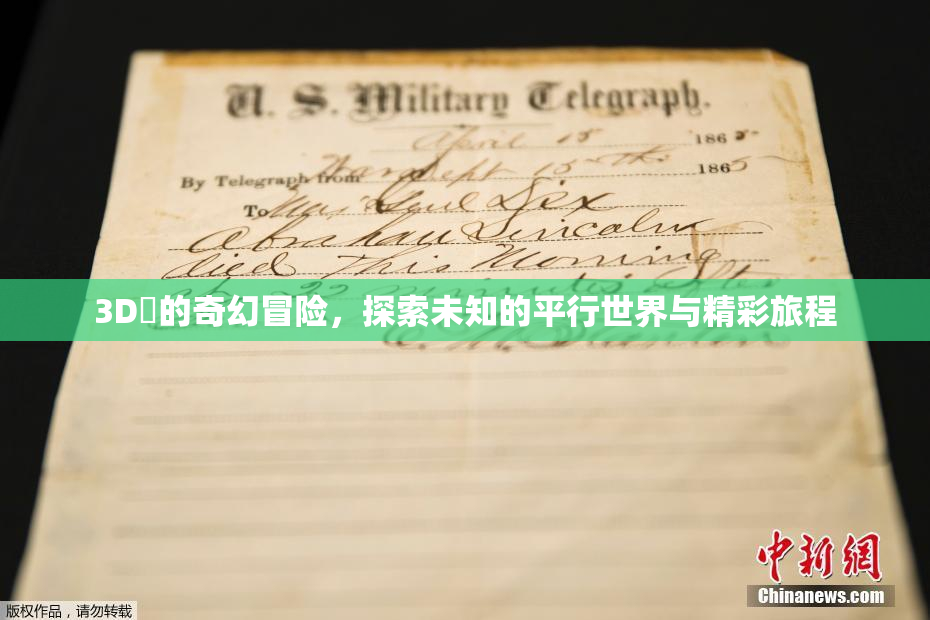 U. S. Military Telegraph.
April 15 1865
By Telegraph from War Dept 15th 1865
To Maj Genl Dix
Abraham Lincoln
died This Morning
22 minutes after
3D的奇幻冒险，探索未知的平行世界与精彩旅程
E. M. Stanton
中新网
Chinanews.com
版权作品，请勿转载